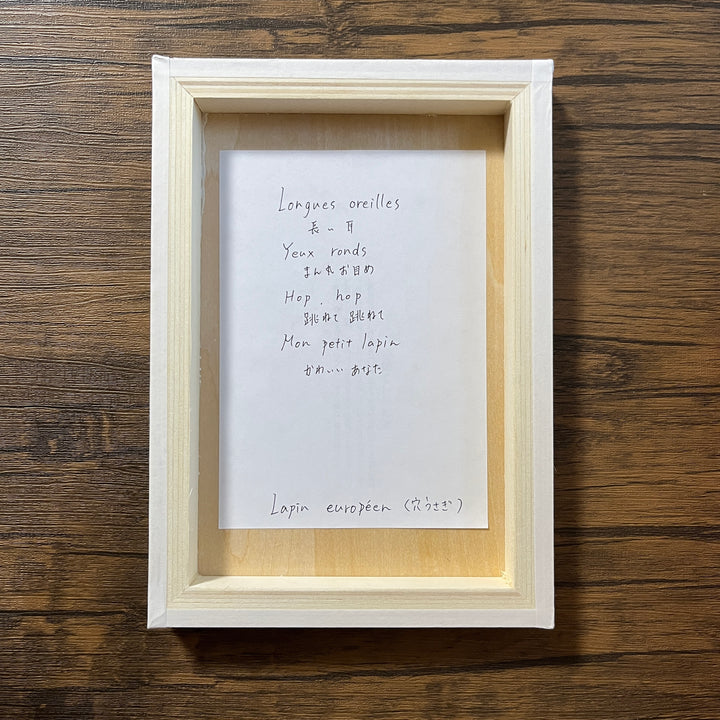 Longues oreilles
長い耳
Yeux ronds
まんまるお目め
Hop, hop
跳ねて 跳ねて
Mon petit lapin
かわいい あなた
Lapin européen (穴うさぎ)